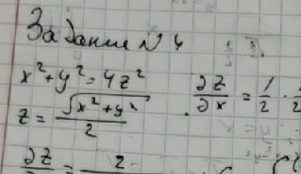 Задание №4
x²+y²=4z²
z = √(x²+y²) / 2
∂z/∂x = 1/2 ·
∂z = 2